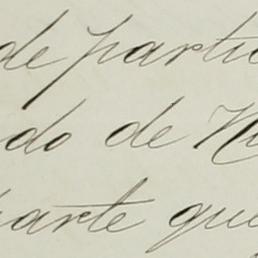 de partic
do de N
parte que